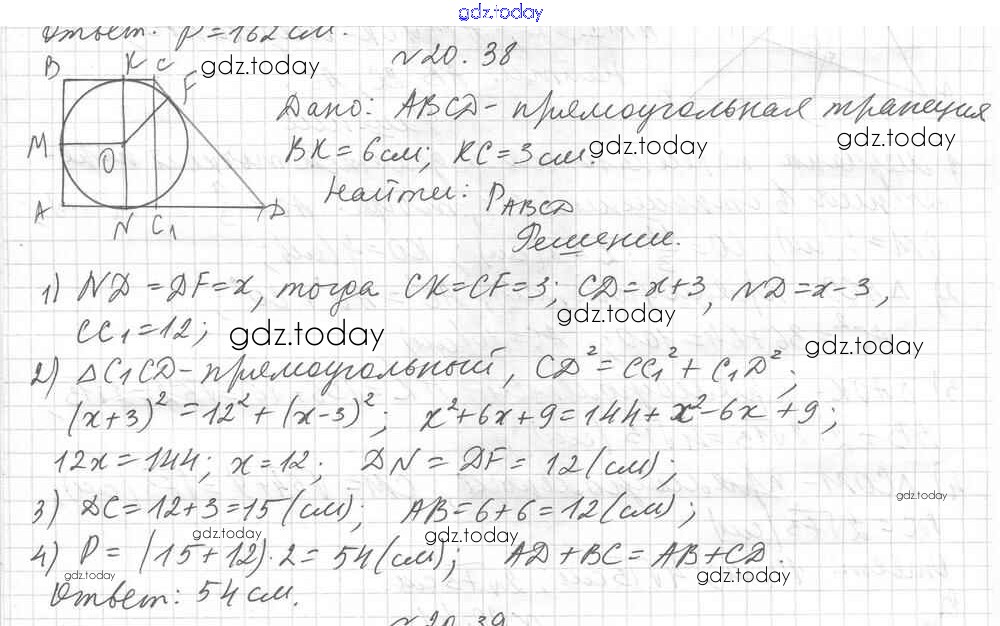 gdz.today
Ответ: P = 162 см.
N20.38
B K C F
M O
A N C₁ D
gdz.today
Дано: ABCD - прямоугольная трапеция
gdz.today
BK = 6 см; KC = 3 см.
gdz.today
Найти: P_ABCD
Решение.
1) ND = DF = x, тогда CK = CF = 3; CD = x+3, ND = x-3,
gdz.today
CC₁ = 12;
gdz.today
gdz.today
2) △C₁CD - прямоугольный, CD² = CC₁² + C₁D²;
(x+3)² = 12² + (x-3)²; x² + 6x + 9 = 144 + x² - 6x + 9;
12x = 144; x = 12; DN = DF = 12 (см);
gdz.today
3) DC = 12 + 3 = 15 (см); AB = 6 + 6 = 12 (см);
gdz.today
gdz.today
4) P = (15 + 12) · 2 = 54 (см); AD + BC = AB + CD.
gdz.today
gdz.today
Ответ: 54 см.
N20.39